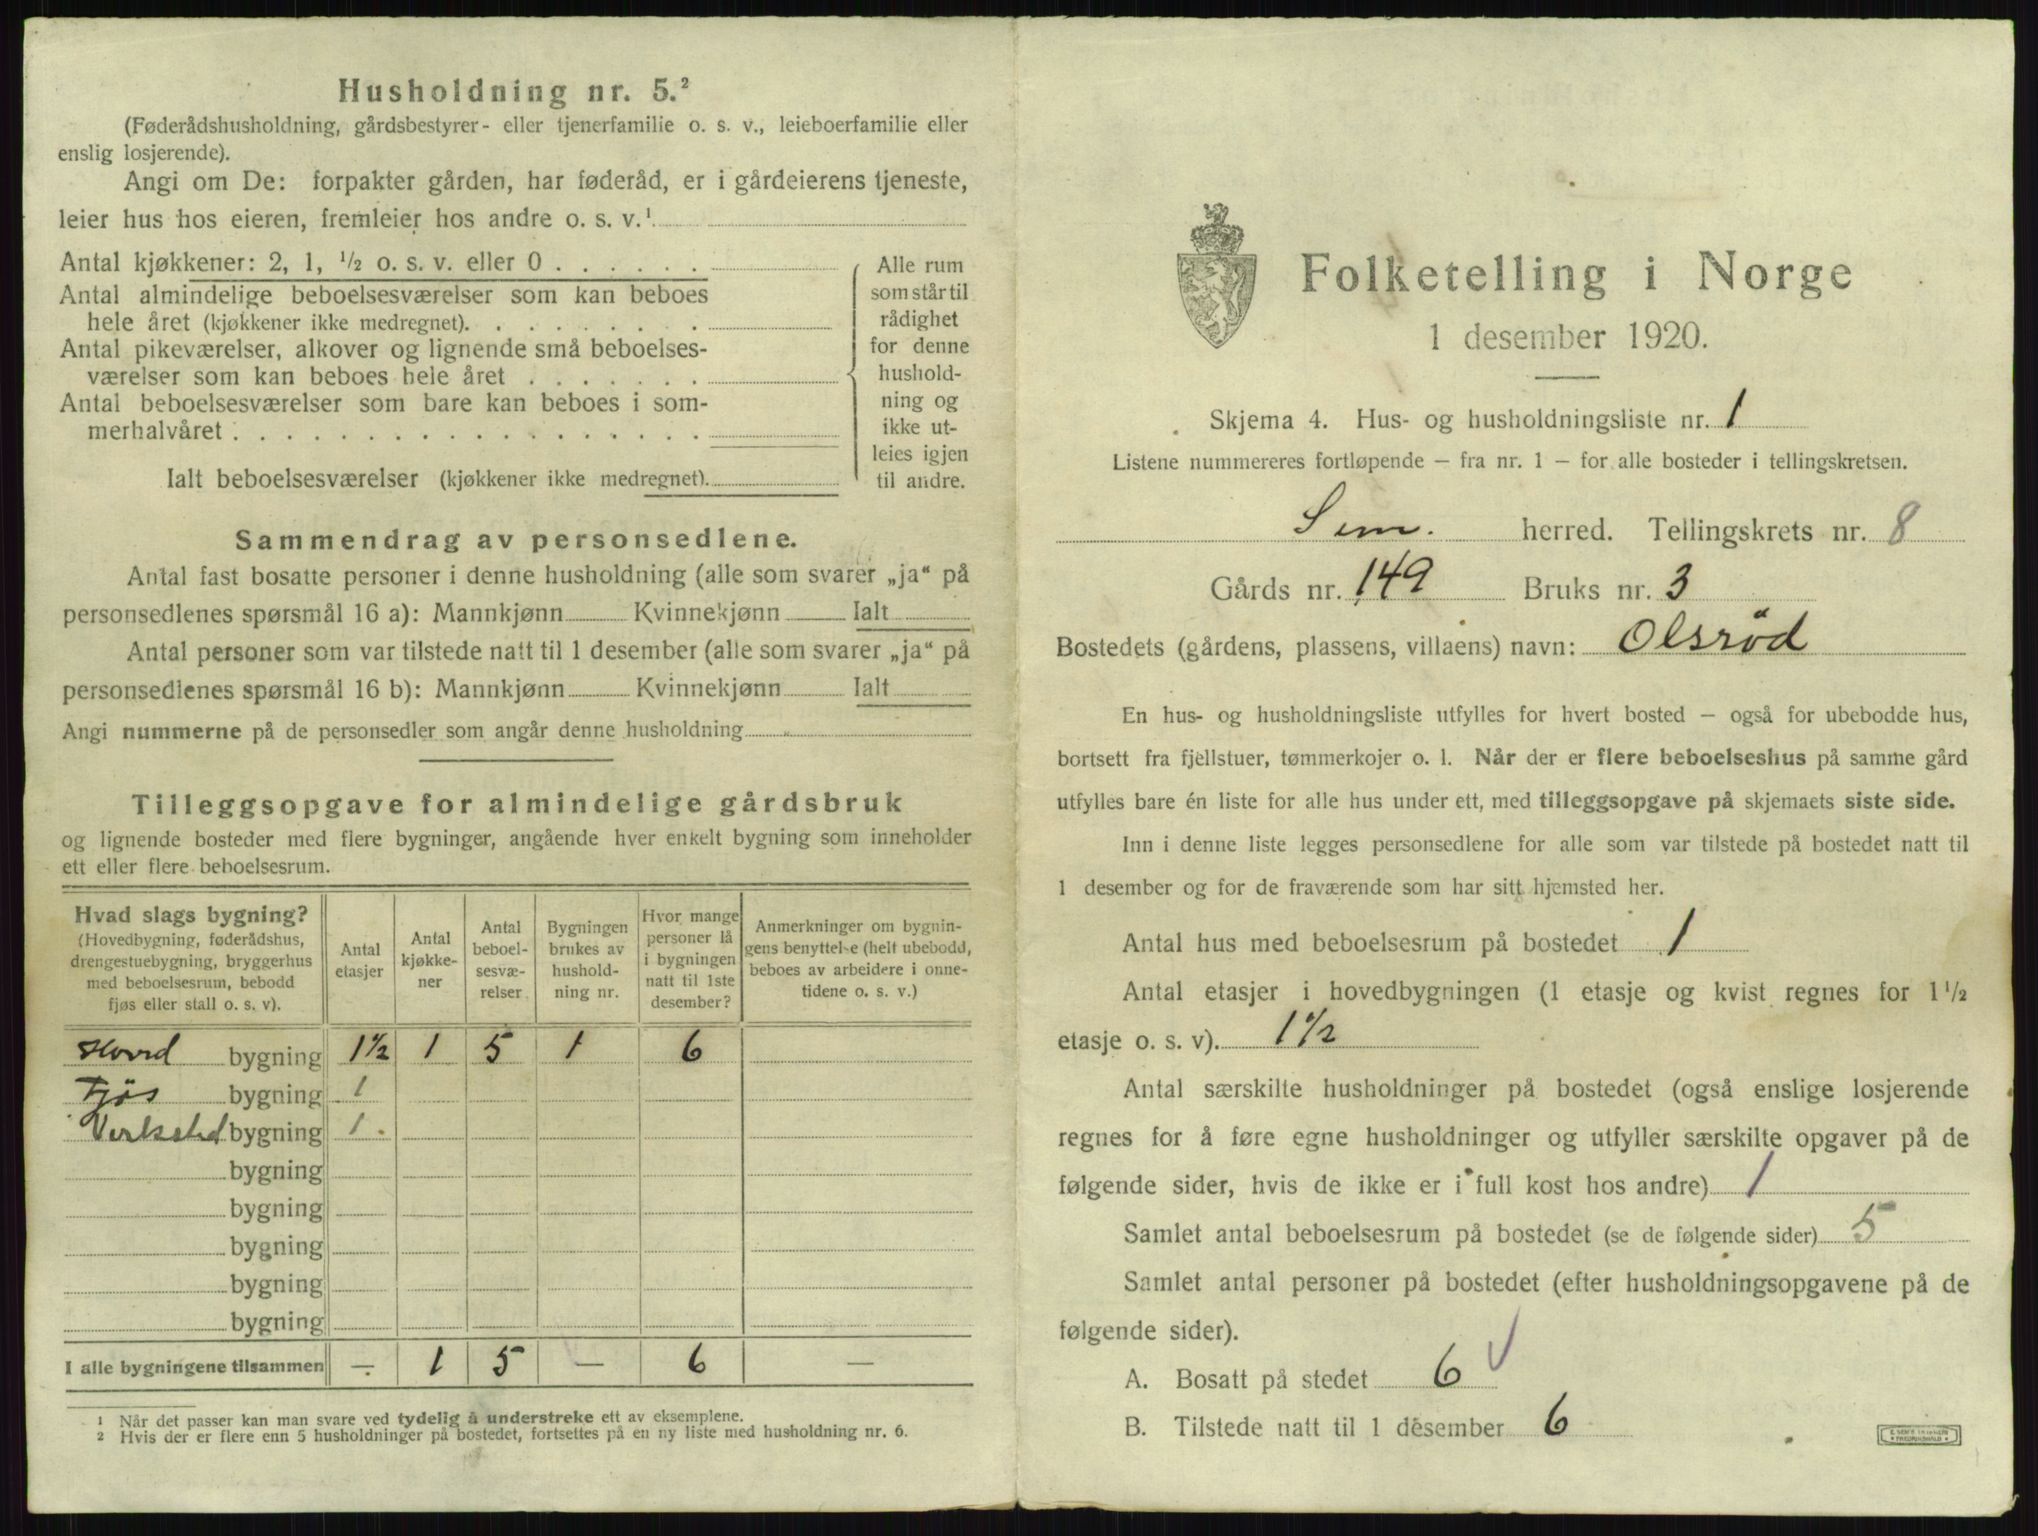 Husholdning nr. 5.²
(Føderådshusholdning, gårdsbestyrer- eller tjenerfamilie o. s. v., leieboerfamilie eller
enslig losjerende).
Angi om De: forpakter gården, har føderåd, er i gårdeierens tjeneste,
leier hus hos eieren, fremleier hos andre o. s. v.¹
Antal kjøkkener: 2, 1, ¹/₂ o. s. v. eller 0 . . . . . .
Antal almindelige beboelsesværelser som kan beboes
hele året (kjøkkener ikke medregnet). . . . . . . . .
Antal pikeværelser, alkover og lignende små beboelses-
værelser som kan beboes hele året . . . . . . .
Antal beboelsesværelser som bare kan beboes i som-
merhalvåret . . . . . . . . . . . . . . . . . .
Ialt beboelsesværelser (kjøkkener ikke medregnet).
Alle rum
som står til
rådighet
for denne
hushold-
ning og
ikke ut-
leies igjen
til andre.
Sammendrag av personsedlene.
Antal fast bosatte personer i denne husholdning (alle som svarer „ja“ på
personsedlenes spørsmål 16 a): Mannkjønn Kvinnekjønn Ialt
Antal personer som var tilstede natt til 1 desember (alle som svarer „ja“ på
personsedlenes spørsmål 16 b): Mannkjønn Kvinnekjønn Ialt
Angi nummerne på de personsedler som angår denne husholdning
Tilleggsopgave for almindelige gårdsbruk
og lignende bosteder med flere bygninger, angående hver enkelt bygning som inneholder
ett eller flere beboelsesrum.
Hvad slags bygning?
(Hovedbygning, føderådshus,
drengestuebygning, bryggerhus
med beboelsesrum, bebodd
fjøs eller stall o. s. v).
Antal
etasjer
Antal
kjøkke-
ner
Antal
beboel-
sesvæ-
relser
Bygningen
brukes av
hushold-
ning nr.
Hvor mange
personer lå
i bygningen
natt til 1ste
desember?
Anmerkninger om bygnin-
gens benyttelse (helt ubebodd,
beboes av arbeidere i onne-
tidene o. s. v.)
Hovd bygning 1½ 1 5 1 6
Fjøs bygning 1
Verksted bygning 1
bygning
bygning
bygning
bygning
bygning
I alle bygningene tilsammen — 1 5 — 6 —
¹ Når det passer kan man svare ved tydelig å understreke ett av eksemplene.
² Hvis der er flere enn 5 husholdninger på bostedet, fortsettes på en ny liste med husholdning nr. 6.
Folketelling i Norge
1 desember 1920.
Skjema 4. Hus- og husholdningsliste nr. 1
Listene nummereres fortløpende – fra nr. 1 – for alle bosteder i tellingskretsen.
Sem. herred. Tellingskrets nr. 8
Gårds nr. 149 Bruks nr. 3
Bostedets (gårdens, plassens, villaens) navn: Olsröd
En hus- og husholdningsliste utfylles for hvert bosted – også for ubebodde hus,
bortsett fra fjellstuer, tømmerkojer o. l. Når der er flere beboelseshus på samme gård
utfylles bare én liste for alle hus under ett, med tilleggsopgave på skjemaets siste side.
Inn i denne liste legges personsedlene for alle som var tilstede på bostedet natt til
1 desember og for de fraværende som har sitt hjemsted her.
Antal hus med beboelsesrum på bostedet 1
Antal etasjer i hovedbygningen (1 etasje og kvist regnes for 1 ¹/₂
etasje o. s. v). 1½
Antal særskilte husholdninger på bostedet (også enslige losjerende
regnes for å føre egne husholdninger og utfyller særskilte opgaver på de
følgende sider, hvis de ikke er i full kost hos andre) 1
Samlet antal beboelsesrum på bostedet (se de følgende sider) 5
Samlet antal personer på bostedet (efter husholdningsopgavene på de
følgende sider).
A. Bosatt på stedet 6 √
B. Tilstede natt til 1 desember 6